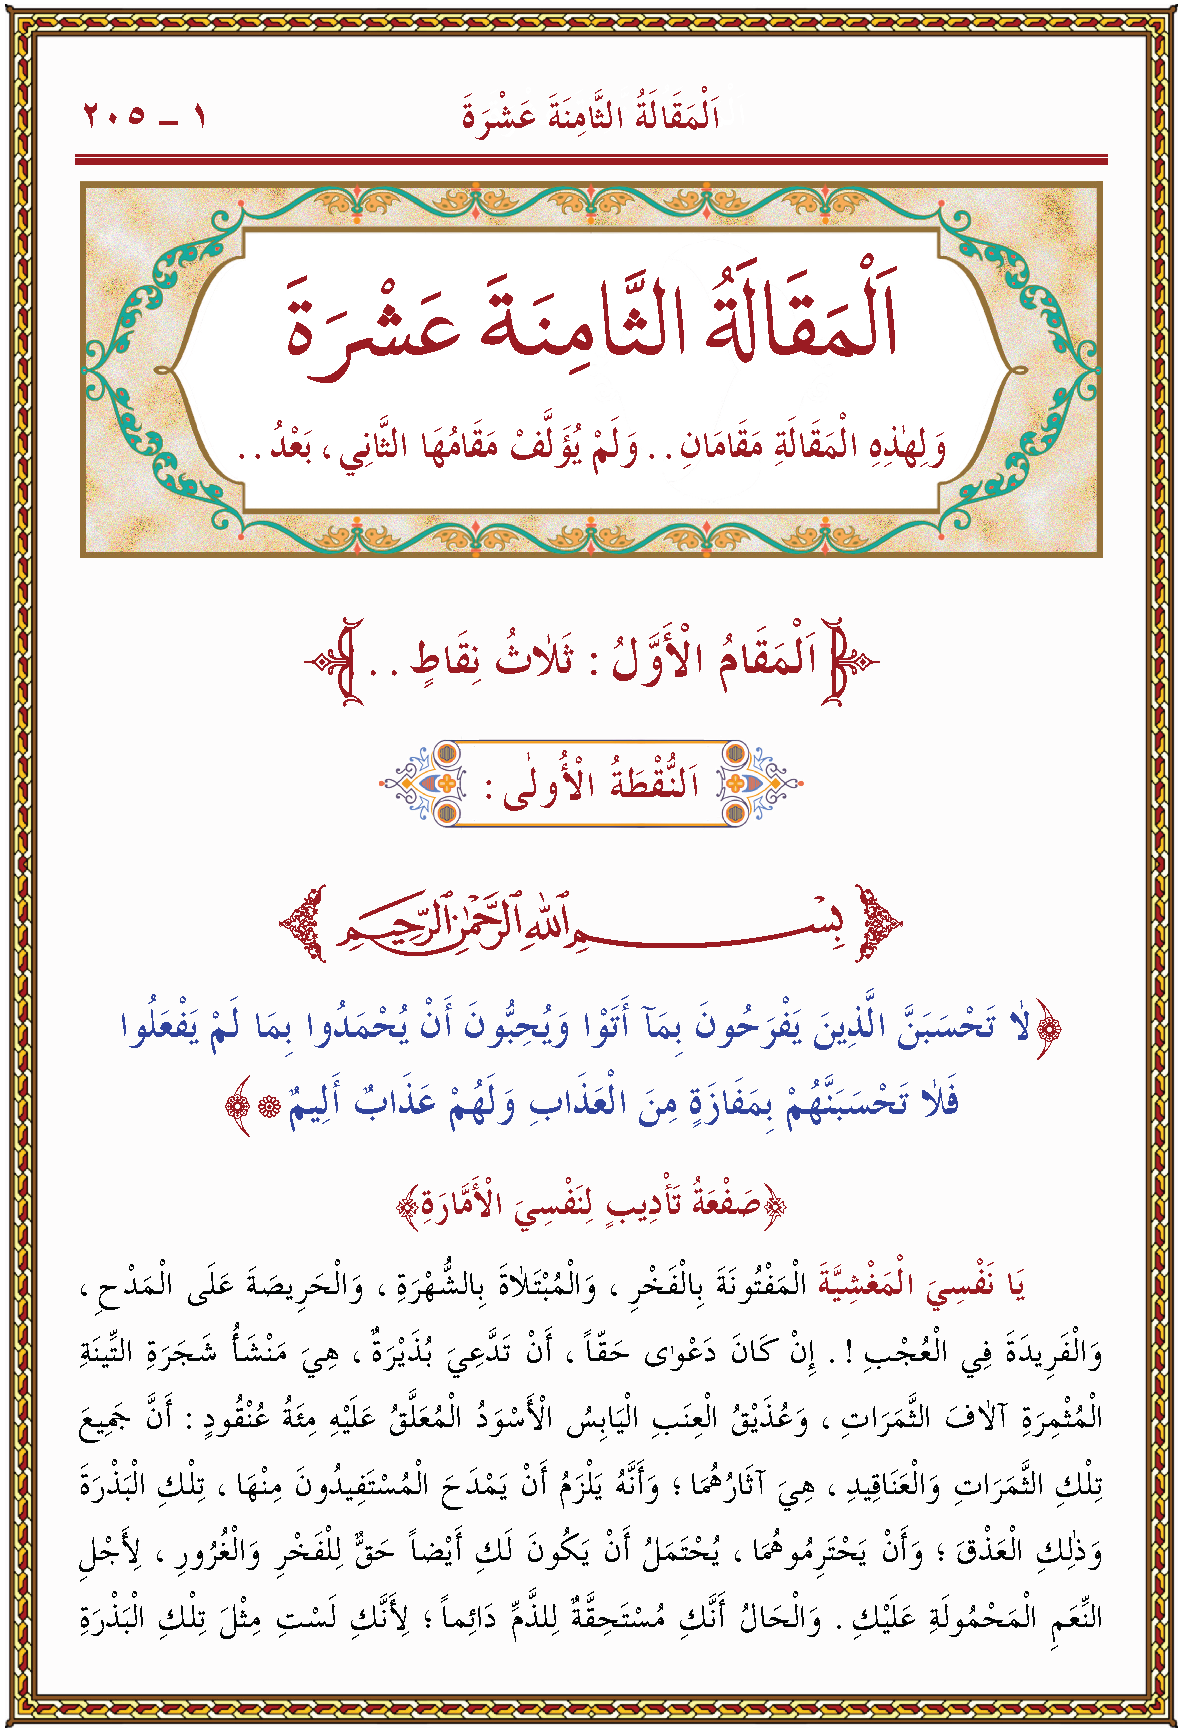 اَلْمَقَالَةُ الثَّامِنَةَ عَشْرَةَ ١ ـ ٢٠٥
اَلْمَقَالَةُ الثَّامِنَةَ عَشْرَةَ
وَلِهٰذِهِ الْمَقَالَةِ مَقَامَانِ . . وَلَمْ يُؤَلَّفْ مَقَامُهَا الثَّانِي ، بَعْدُ . .
اَلْمَقَامُ الْأَوَّلُ : ثَلَاثُ نِقَاطٍ . .
اَلنُّقْطَةُ الْأُولٰى :
بِسْمِ اللهِ الرَّحْمٰنِ الرَّحِيمِ
﴿لَا تَحْسَبَنَّ الَّذِينَ يَفْرَحُونَ بِمَآ أَتَوْا وَيُحِبُّونَ أَنْ يُحْمَدُوا بِمَا لَمْ يَفْعَلُوا
فَلَا تَحْسَبَنَّهُمْ بِمَفَازَةٍ مِنَ الْعَذَابِ وَلَهُمْ عَذَابٌ أَلِيمٌ ۞﴾
﴿صَفْعَةُ تَأْدِيبٍ لِنَفْسِيَ الْأَمَّارَةِ﴾
يَا نَفْسِيَ الْمَغْشِيَّةَ الْمَفْتُونَةَ بِالْفَخْرِ ، وَالْمُبْتَلَاةَ بِالشُّهْرَةِ ، وَالْحَرِيصَةَ عَلَى الْمَدْحِ ،
وَالْفَرِيدَةَ فِي الْعُجْبِ ! . إِنْ كَانَ دَعْوٰى حَقّاً ، أَنْ تَدَّعِيَ بُذَيْرَةٌ ، هِيَ مَنْشَأُ شَجَرَةِ التِّينَةِ
الْمُثْمِرَةِ آلَافَ الثَّمَرَاتِ ، وَعُذَيْقُ الْعِنَبِ الْيَابِسُ الْأَسْوَدُ الْمُعَلَّقُ عَلَيْهِ مِئَةُ عُنْقُودٍ : أَنَّ جَمِيعَ
تِلْكَ الثَّمَرَاتِ وَالْعَنَاقِيدِ ، هِيَ آثَارُهُمَا ؛ وَأَنَّهُ يَلْزَمُ أَنْ يَمْدَحَ الْمُسْتَفِيدُونَ مِنْهَا ، تِلْكِ الْبَذْرَةَ
وَذٰلِكِ الْعَذْقَ ؛ وَأَنْ يَحْتَرِمُوهُمَا ، يُحْتَمَلُ أَنْ يَكُونَ لَكِ أَيْضاً حَقٌّ لِلْفَخْرِ وَالْغُرُورِ ، لِأَجْلِ
النِّعَمِ الْمَحْمُولَةِ عَلَيْكِ . وَالْحَالُ أَنَّكِ مُسْتَحِقَّةٌ لِلذَّمِّ دَائِماً ؛ لِأَنَّكِ لَسْتِ مِثْلَ تِلْكِ الْبَذْرَةِ